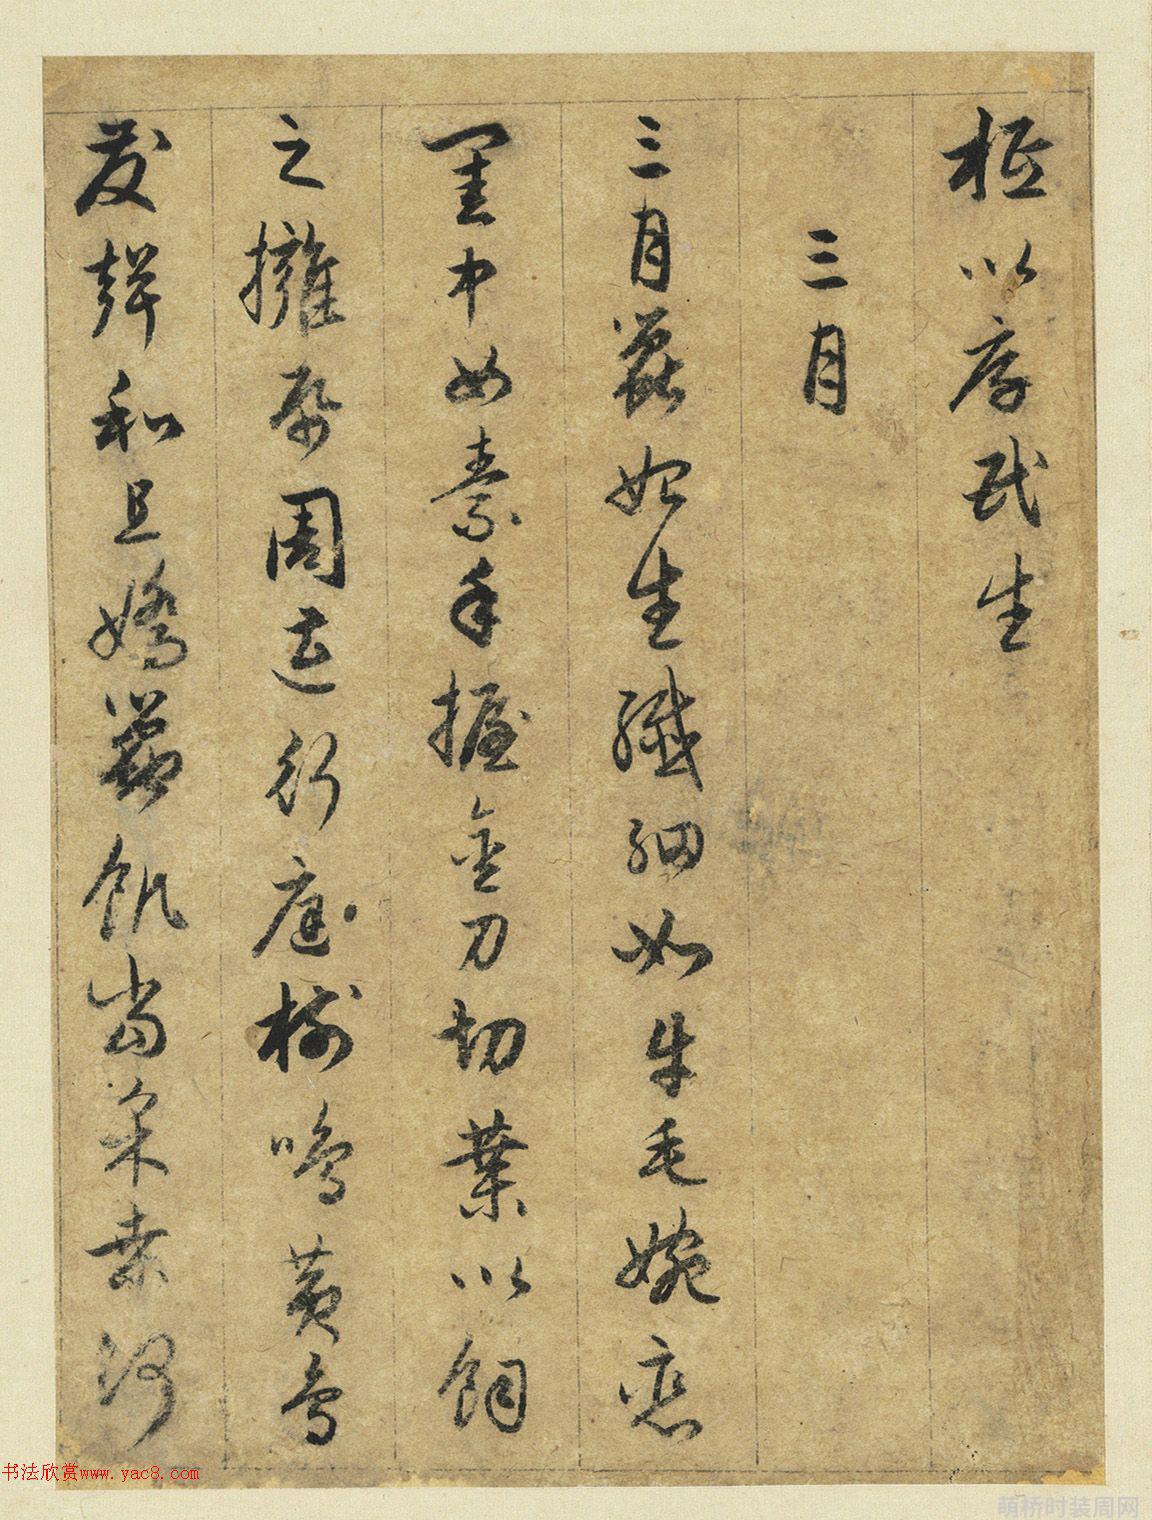 柢以厚民生
三月
三月蠶始生纖細如牛毛婉孌
閨中女素手握金刀切葉以飼
之擁帋周迊行庭樹鳴黃鳥
發聲和且嬌蠶飢當采桑何
书法欣赏www.yac8.com
萌桥时装周网